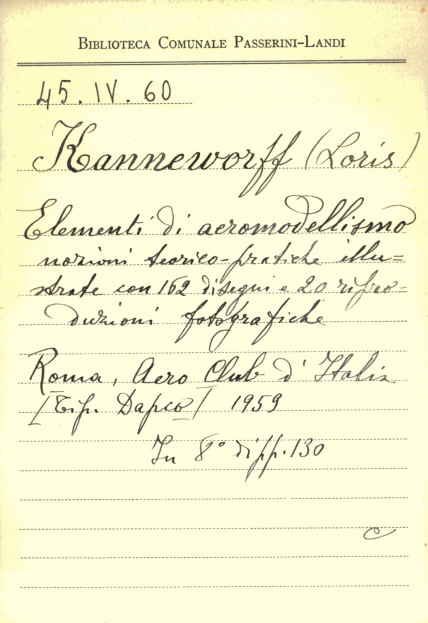 BIBLIOTECA COMUNALE PASSERINI-LANDI
45.IV.60
Kanneworff (Loris)
Elementi di aeromodellismo
nozioni teorico-pratiche illu=
strate con 162 disegni e 20 ripro=
duzioni fotografiche
Roma, Aero Club d'Italia
[Tip. Dapco] 1959
In 8° di pp. 130
C